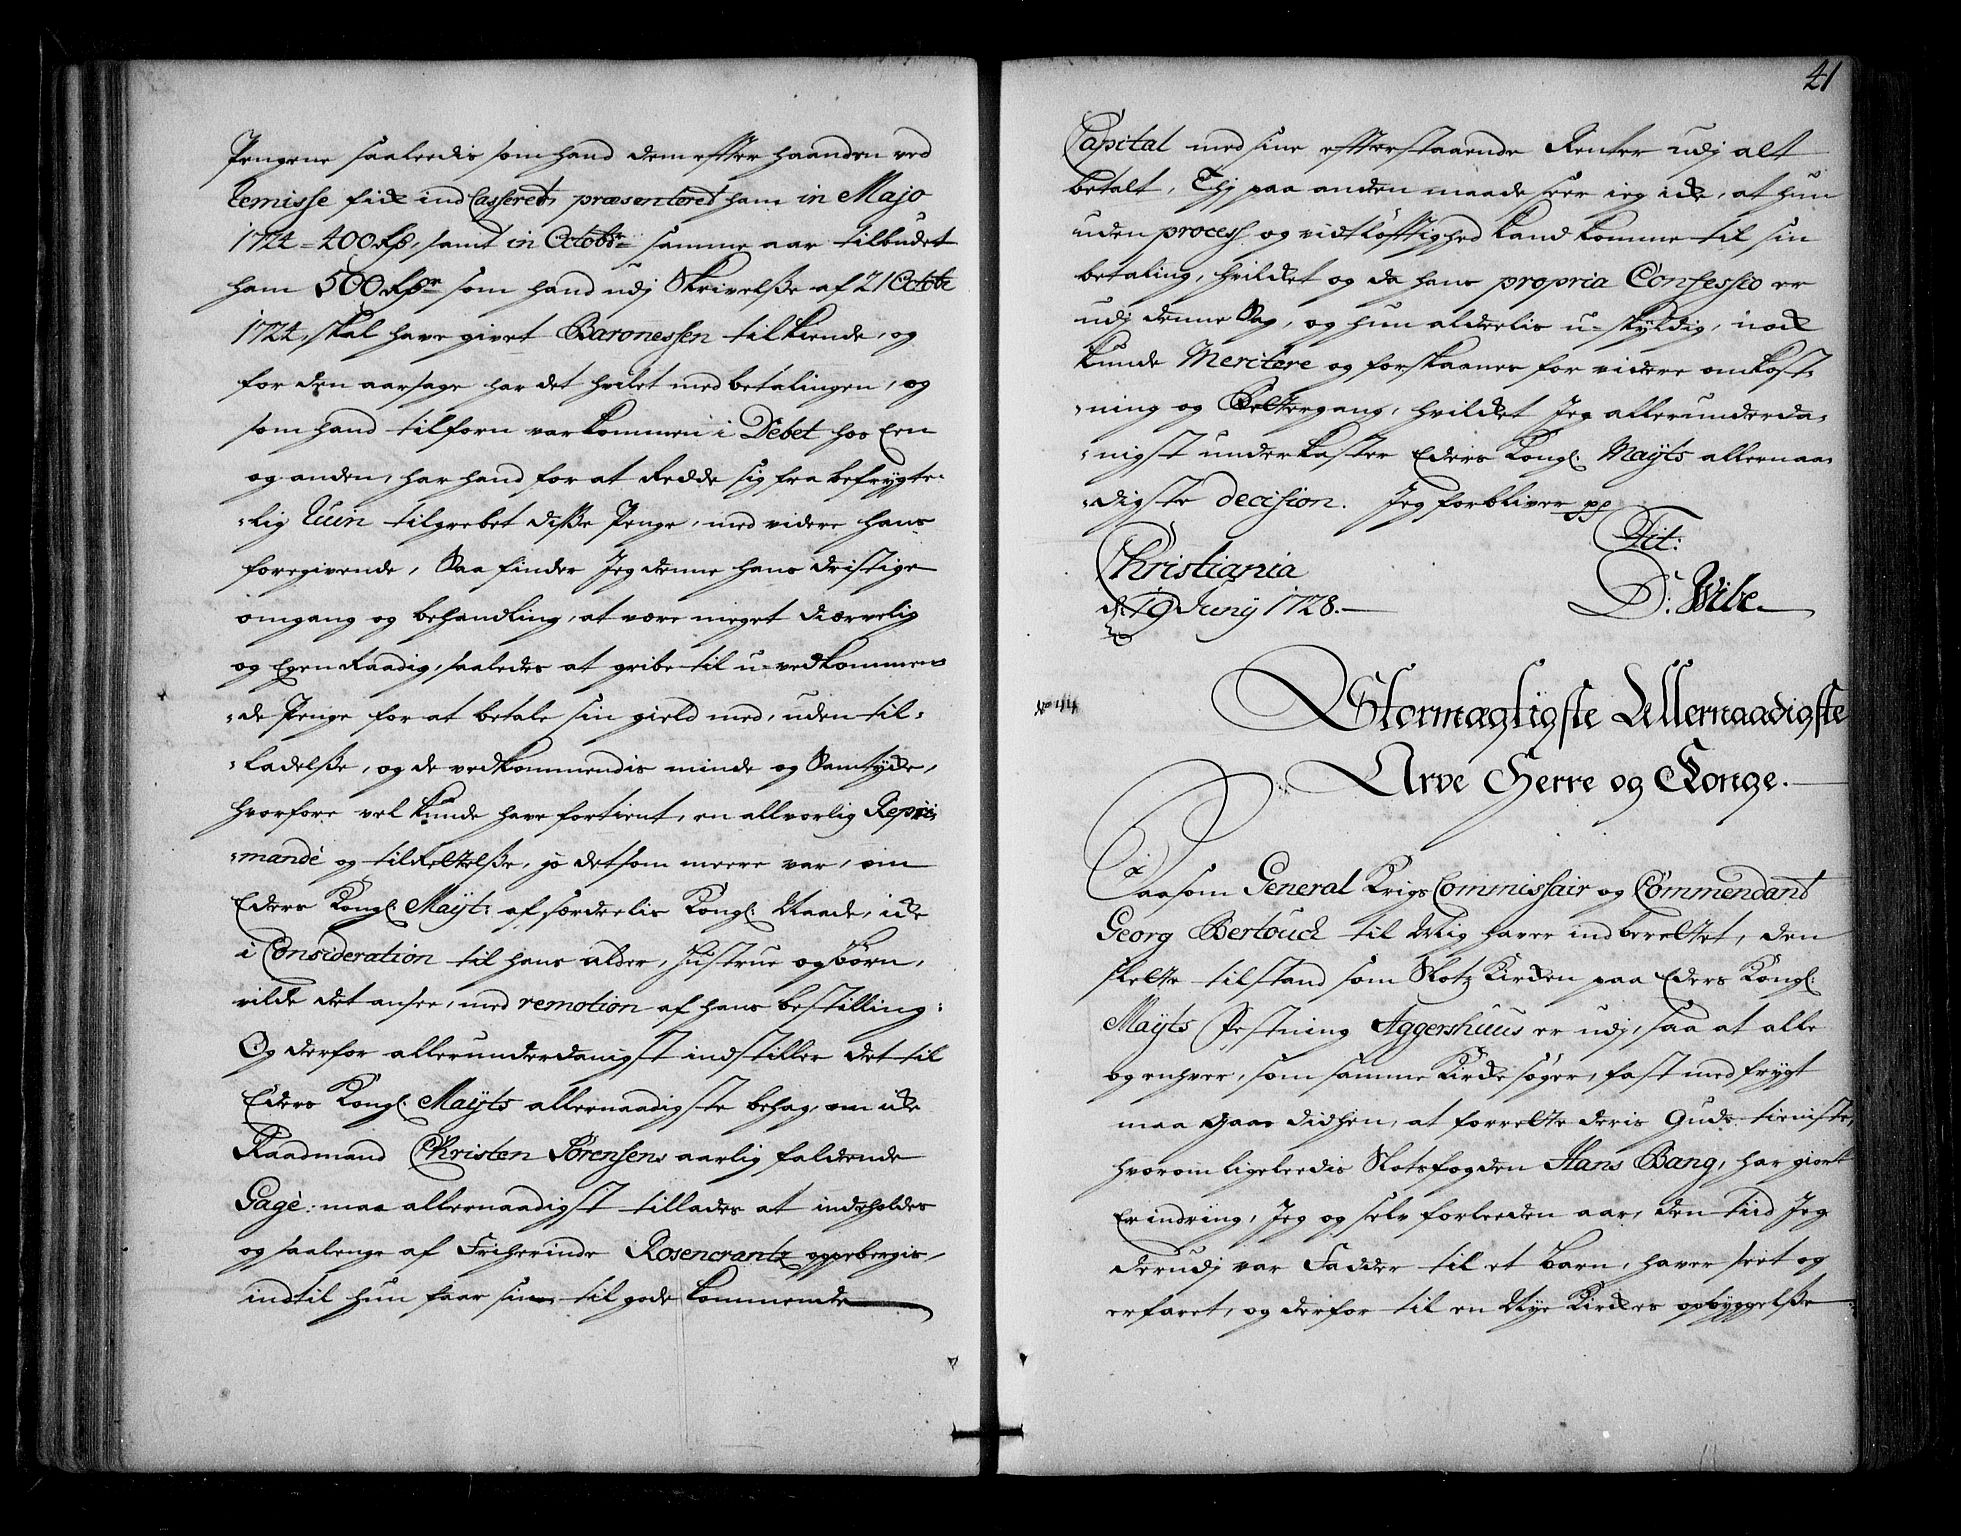 Pengene saaledis som hand dem efter haanden ved
Remisse fik ind Casseret, præsenteret ham in Majo
1724 = 400 Rd, samt in Octobr: samme aar tilbudet
ham 500 Rdr som hand udj Skrivelße af 21 Octobr
1724, skal have givet Baronessen tilkiende, og
for den aarsage har det hvilet med betalingen, og
som hand tilforn var kommen i Debet hos Een
og anden, har hand for at Redde sig fra befrygte-
-lig Ruin tilgrebet diße Penge, med videre hans
foregivende, Saa finder Jeg denne hans dristige
omgang og behandling, at være meget diærvelig
og Egenraadig, saaledes at gribe til u-vedkommen-
-de Penge for at betale sin gield med, uden til-
-ladelße, og de vedkommendis minde og Samtycke,
hvorfore vel kunde have fortient, en allvorlig Repri-
-mande og tilrettelße, jo det som meere var, om
Eders Kongl: Mayt: af særdeelis Kongl: Naade, icke
i Consideration til hans alder, Hustrue og børn,
vilde det ansee, med remotion af hans bestilling:
Og derfor allerunderdanigst indstiller det til
Eders Kongl: Mayts allernaadigste behag, om icke
Raadmand Christen Sørensens aarlig faldende
Gage: maa allernaadigst tillades at indeholdes
og saalenge af Friherinde Rosencrantz oppebergis,
indtil hun faar sin til gode kommende
41
Capital med sine efterstaaende Renter udj alt
betalt, Thj paa anden maade seer ieg icke, at hun
uden process og vidtløftighed kand komme til sin
betaling, hvilcket og da hans propria Confessio er
udj denne Sag, og hun aldeelis u-skyldig, nock
kunde Meritere og forskaanes for videre omkost-
-ning og Rettergang, hvilcket Jeg allerunderda-
-nigst underkaster Eders Kongl: Mayts allernaa-
-digste decision. Jeg forbliver pp
Tit:
Christiania
d: 19 Junij 1728.
D: Wibe
No 44
Stormægtigste Allernaadigste
Arve Herre og Konge.
Saasom General Krigs Commissair og Commendant
Georg Bertouch til Mig haver indberettet, den
slette tilstand som Slotz Kircken paa Eders Kongl:
Mayts Festning Aggershuus er udj, saa at alle
og enhver, som samme Kircke søger, fast med frygt
maa gaae didhen, at forrette deris Guds tieniste,
hvorom ligeleedis Slotsfogden Hans Bang, har giort
Erindring, Jeg og selv forleeden aar, den tiid Jeg
derudj var Fadder til et barn, haver seet og
erfaret, og derfor til en Nye Kirckes opbyggelße